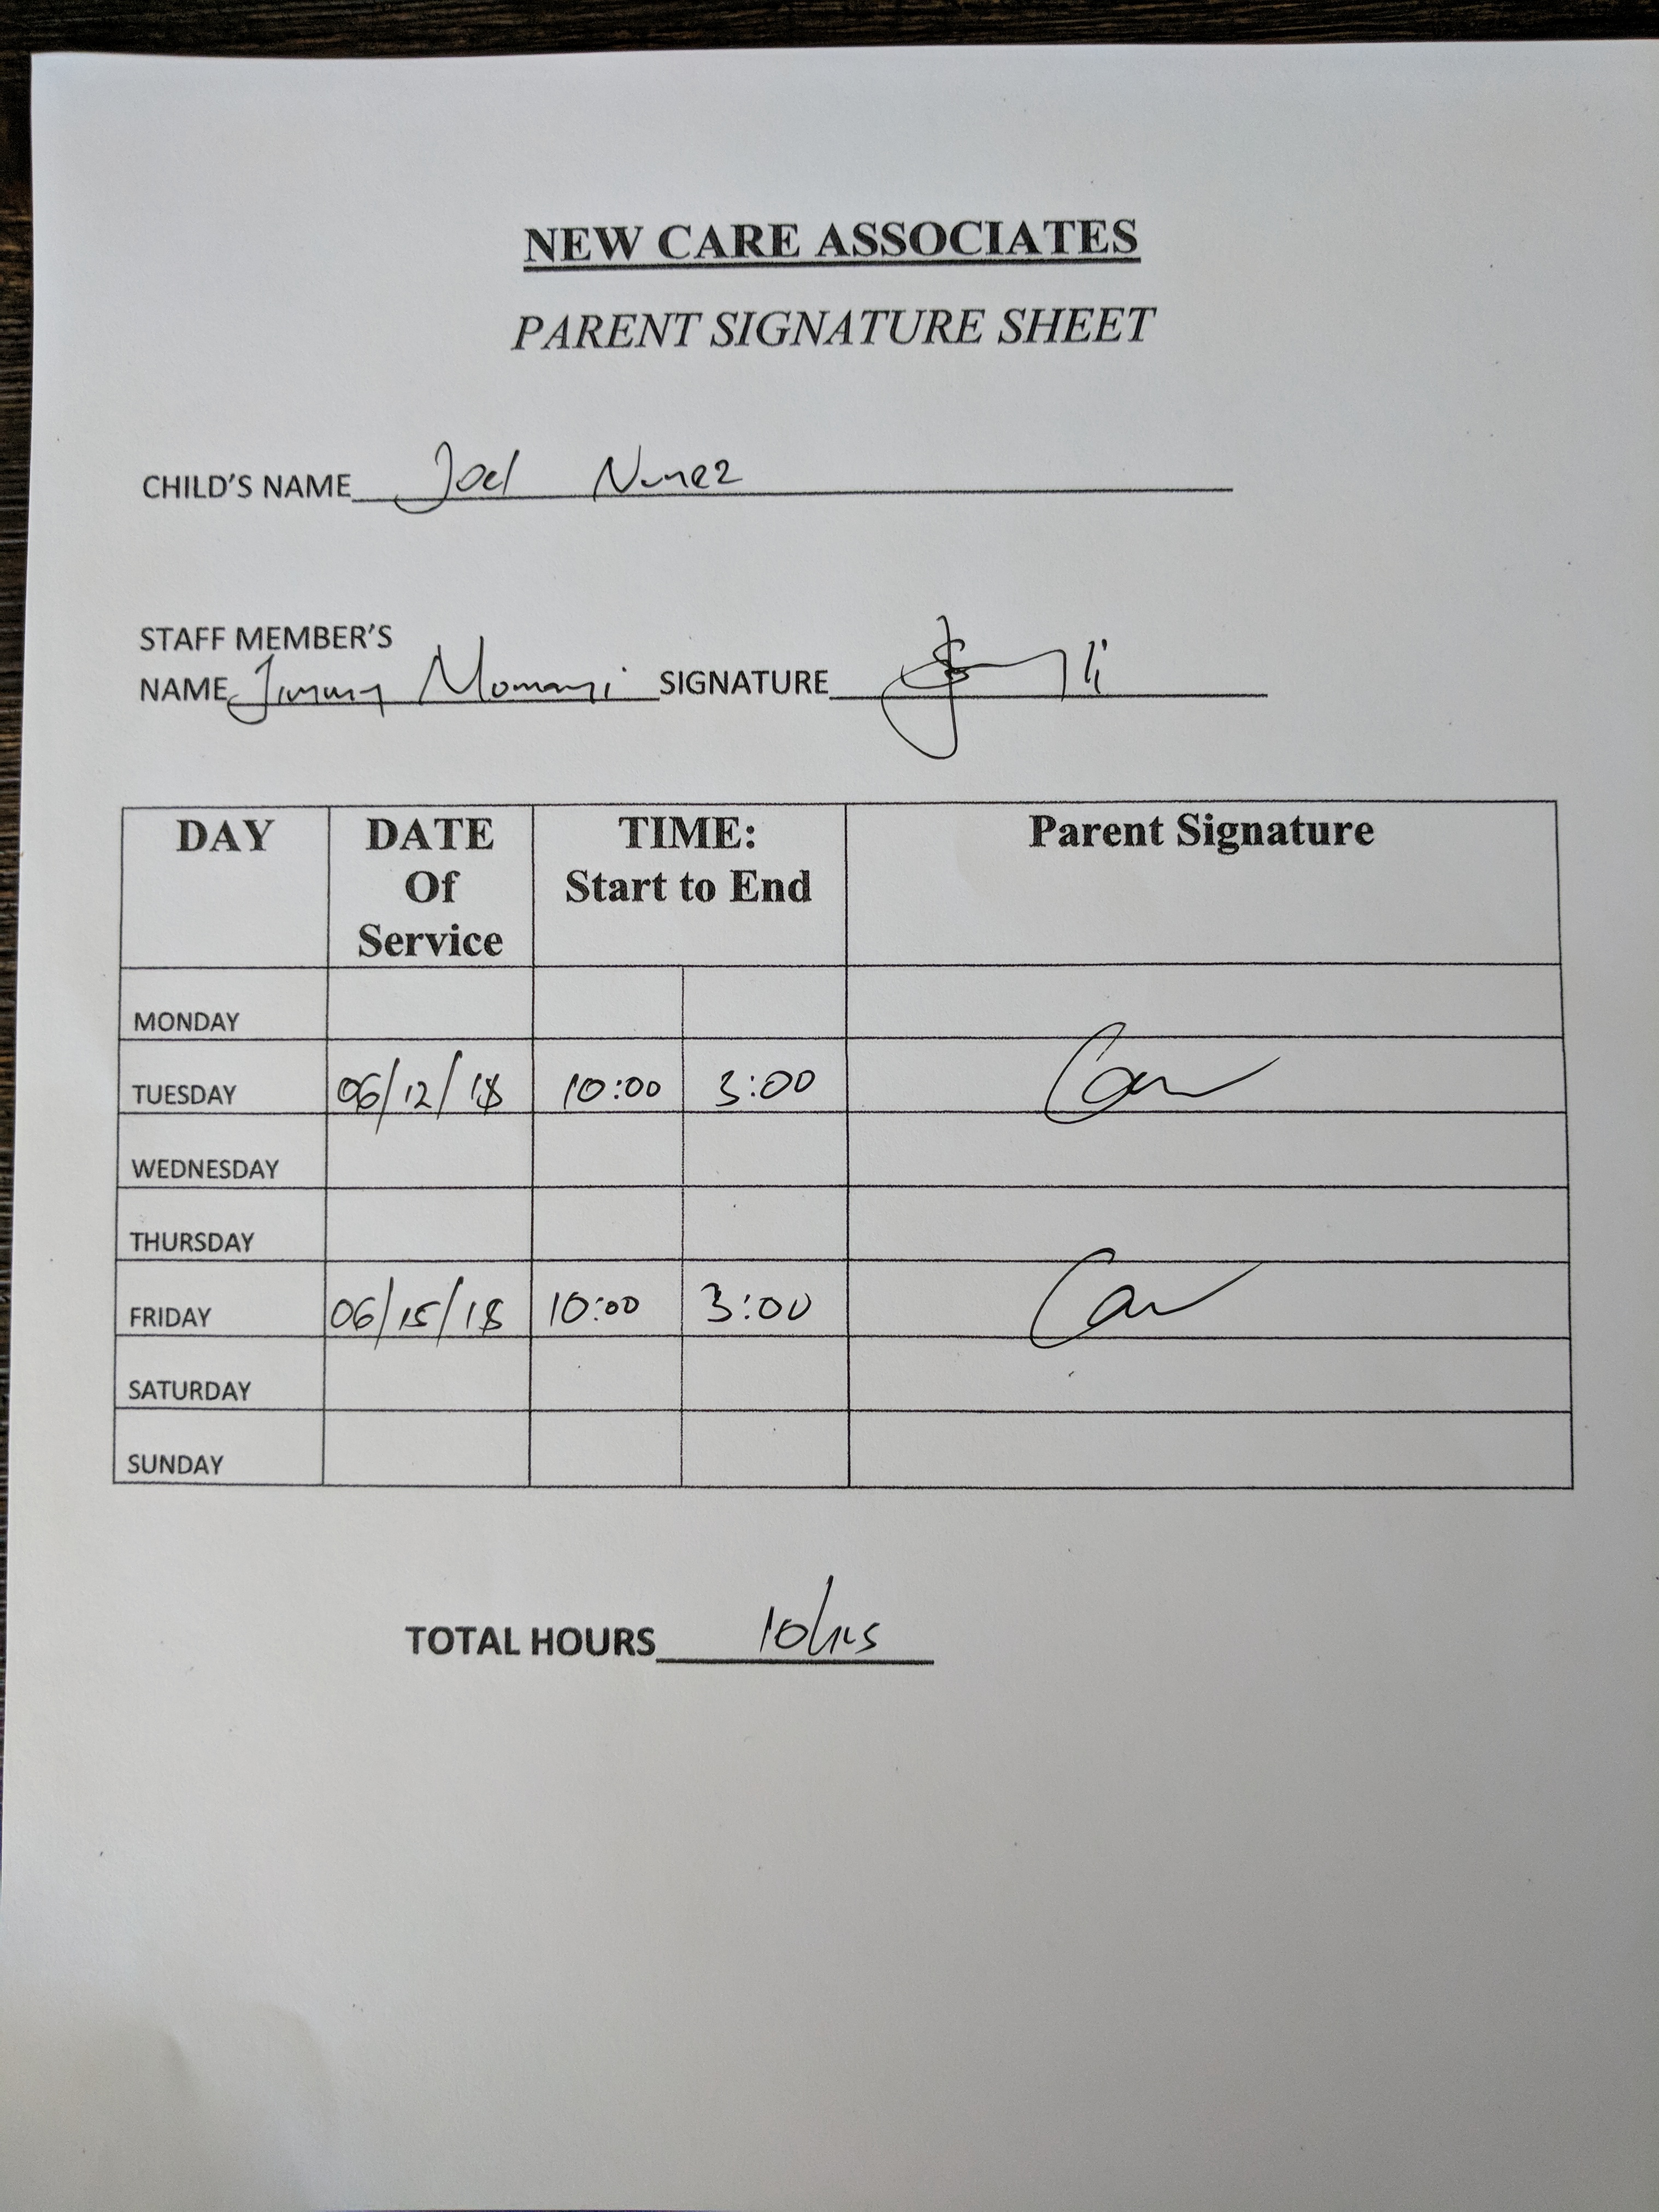 NEW CARE ASSOCIATES
PARENT SIGNATURE SHEET
CHILD'S NAME Joel Nunez
STAFF MEMBER'S
NAME Jimmy Momanyi SIGNATURE
DAY DATE Of Service TIME: Start to End Parent Signature
MONDAY
TUESDAY 06/12/18 10:00 3:00
WEDNESDAY
THURSDAY
FRIDAY 06/15/18 10:00 3:00
SATURDAY
SUNDAY
TOTAL HOURS 10hrs